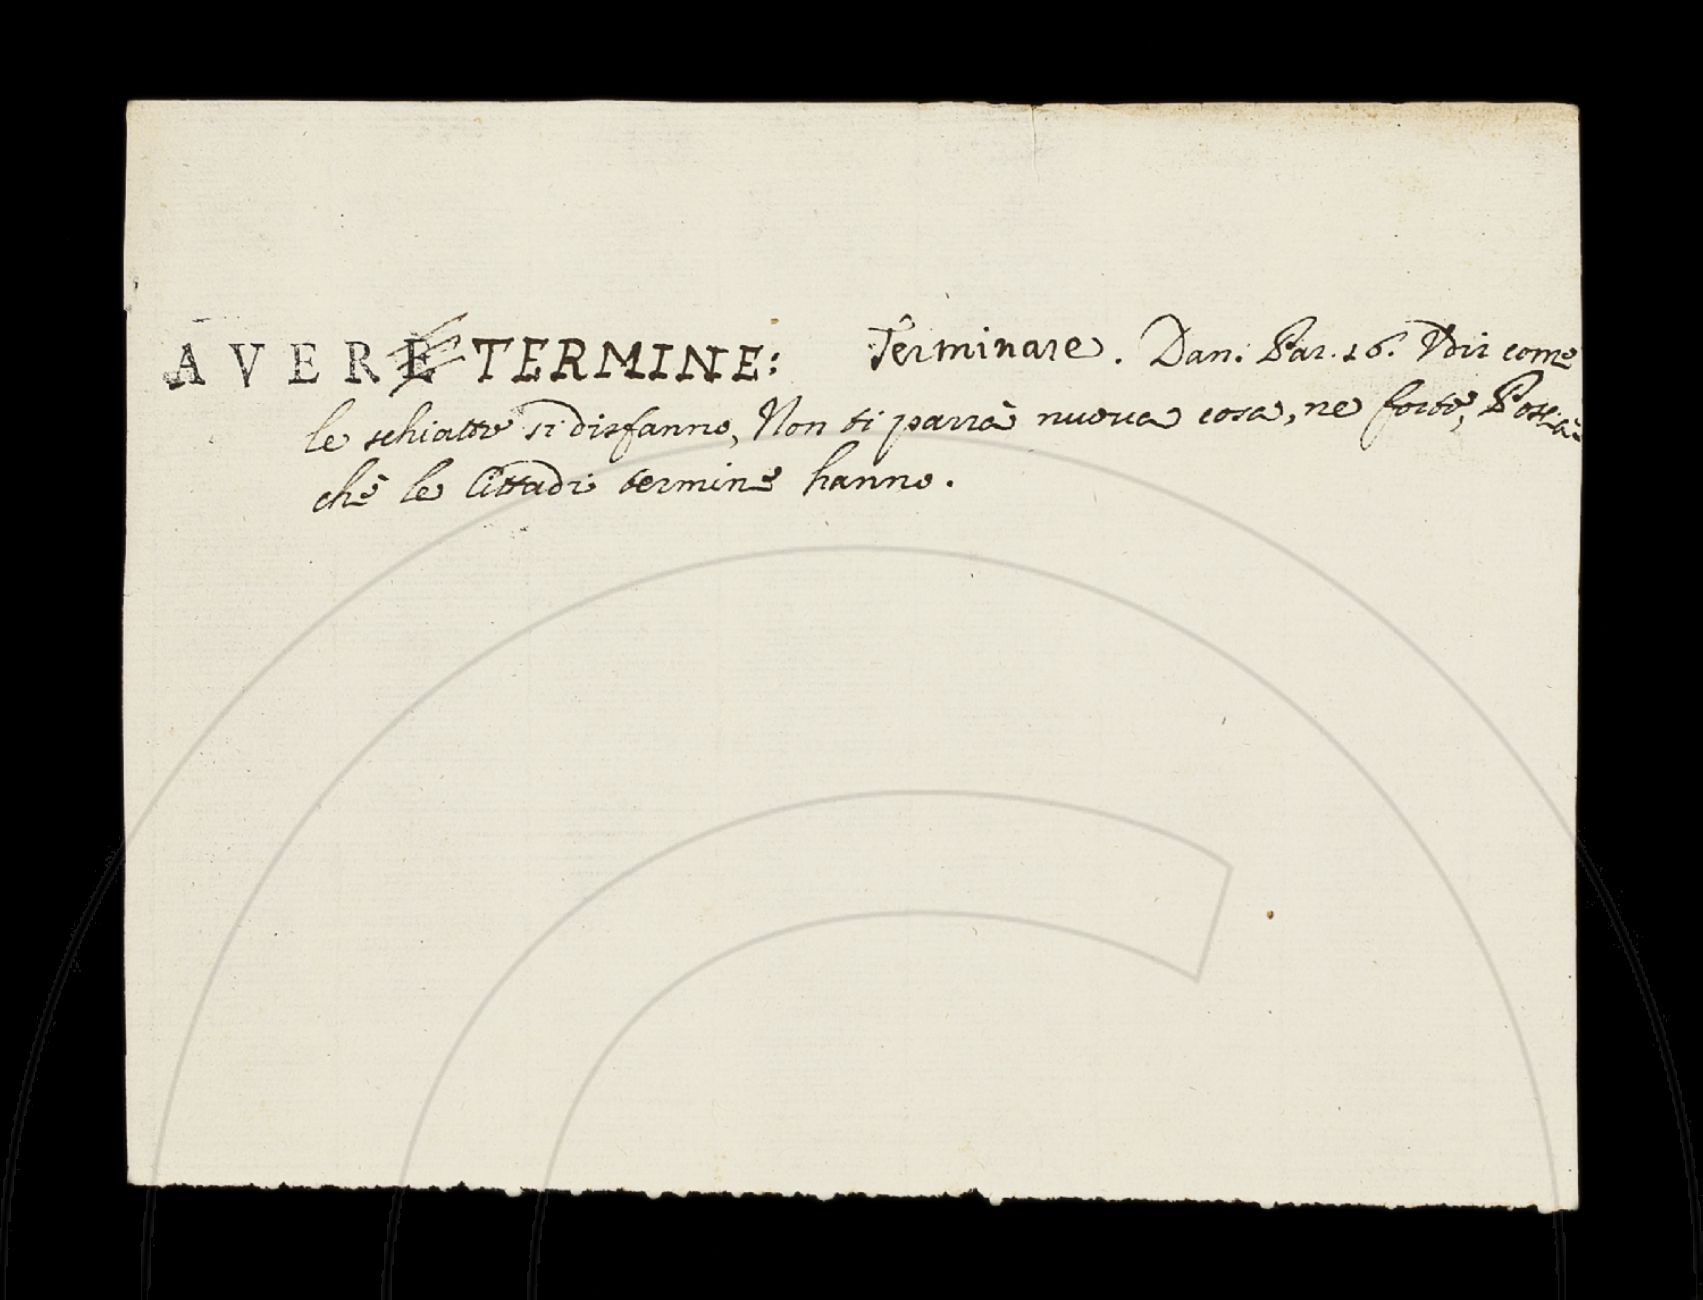 AVER TERMINE: Terminare. Dan. Par. 16. Vdir come
le schiatte si disfanno, Non ti parrà nuova cosa, ne forte, Poscia
che le Cittadi termine hanno.